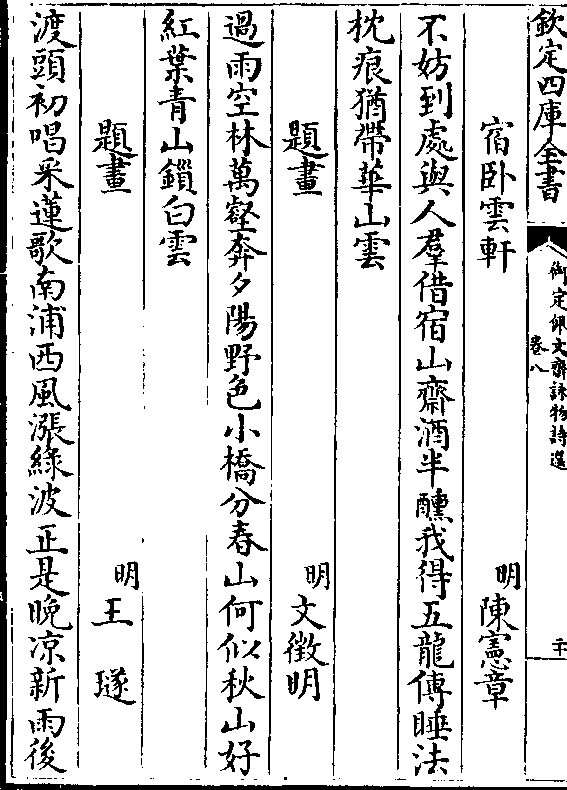 欽定四庫全書
御定佩文齋詠物詩選
卷八
二十
宿卧雲軒 明 陳憲章
不妨到處與人羣借宿山齋酒半醺我得五龍傳睡法
枕痕猶帶華山雲
題畫 明 文徵明
過雨空林萬壑奔夕陽野色小橋分春山何似秋山好
紅葉青山鎖白雲
題畫 明 王璲
渡頭初唱采蓮歌南浦西風漲綠波正是晚凉新雨後